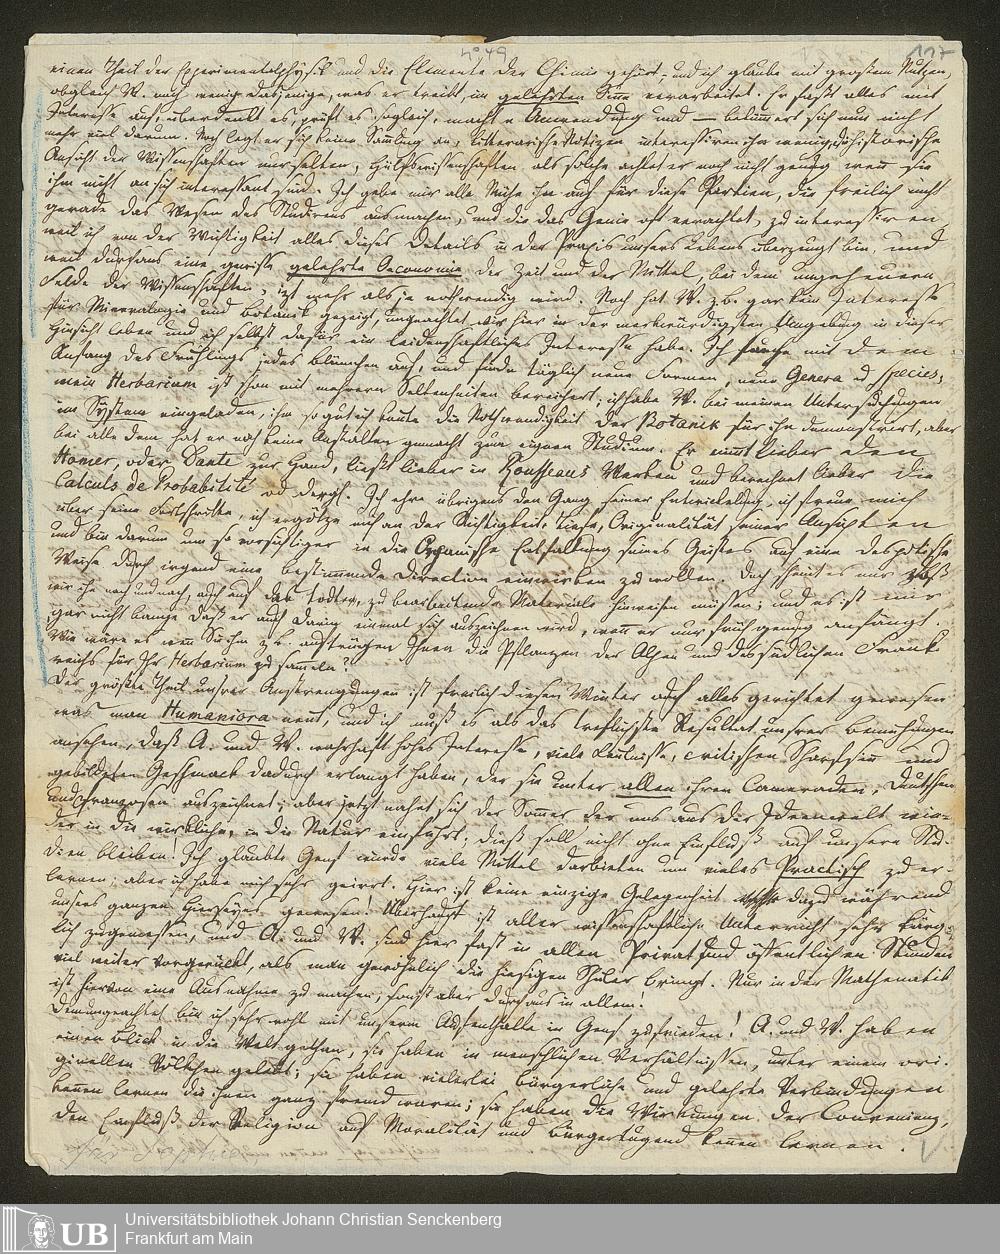 no 49
117
einen Theil der Experimentalphysik und die Elemente der Chimie gehört – und ich glaube mit grossem Nutzen,
obgleich W. noch wenig dasjenige, was er treibt, im gelehrten Sinn verarbeitet. Er faßt alles mit
Interesse auf, überdenkt es, prüft es sogleich, macht Anwendung und — bekümmert sich nun nicht
mehr viel darum. Noch legt er sich keine Samlung an, litterarische Notizen interessiren ihn wenig, die historische
Ansicht der Wissenschaften nur selten, Hülfswissenschaften als solche achtet er noch nicht genug wenn sie
ihm nicht an sich interessant sind. Ich gebe mir alle Mühe ihn auch für diese Partien, die freilich nicht
gerade das Wesen des Studirens ausmachen, und die das Genie oft verachtet, zu interessiren
weil ich von der Wichtigkeit alles dieses Details in der Praxis unsers Lebens überzeugt bin, und
weil durchaus eine gewisse gelehrte Oeconomie der Zeit und der Mittel, bei dem ungeheuern
Felde der Wissenschaften, izt mehr als je nothwendig wird. Noch hat W. z.b. gar kein Interesse
für Mineralogie und Botanik gezeigt, ungeachtet wir hier in der merkwürdigsten Umgebung in dieser
Hinsicht leben und ich selbst dafür ein leidenschaftliches Interesse habe. Ich suche mit dem
Anfang des Frühlings jedes Blümchen auf, und finde täglich neue Formen, neue Genera u Species,
mein Herbarium ist schon mit mehrern Seltenheiten bereichert; ich habe W. bei meinen Untersuchungen
im System eingeladen, ihm so gut ich konte die Nothwendigkeit der Botanik für ihn demonstrirt, aber
bei alle dem hat er noch keine Anstalten gemacht zum eignen Studium. Er nimt lieber den
Homer, oder Dante zur Hand, ließt lieber in Rousseaus Werken und berechnet lieber die
Calculs de Probabilité od dergl. Ich ehre übrigens den Gang seiner Entwicklung, ich freue mich
über seine Fortschritte, ich ergötze mich an der Richtigkeit, Tiefe, Originalität seiner Ansichten
und bin darum um so vorsichtiger in die Organische Entfaltung seines Geistes auf eine despotische
Weise durch irgend eine bestimmende Direction einwirken zu wollen. Doch scheint es mir
wir ihn nach und nach, auch auf das todte, zu bearbeitende Materiale hinweisen müssen; und es ist mir
gar nicht bange daß er auch darin einmal sich auszeichnen wird, wenn er nur früh genug anfängt.
Wie wäre es wenn Sie ihm z.b. auftrügen Ihnen die Pflanzen der Alpen und des südlichen Frank
reichs für Ihr Herbarium zu sameln?
Der größte Theil unsrer Anstrengungen ist freilich diesen Winter auf alles gerichtet gewesen
was man Humaniora nent, und ich muß es als das treflichste Resultat unsrer Bemühungen
ansehen, daß A. und W. wahrhaft hohes Interesse, viele Kentnisse, critischen Scharfsinn und
gebildeten Geschmack dadurch erlangt haben, der sie unter allen ihren Cameraden, Deutschen
und Franzosen auszeichnet; aber jetzt nahet sich der Somer der uns aus der Ideenwelt wie-
der in die wirkliche, in die Natur einführt; dieß soll nicht ohne Einfluß auf unsere Stu-
dien bleiben! Ich glaubte Genf würde viele Mittel darbieten um vieles Practisch zu er-
lernen; aber ich habe mich sehr geirrt. Hier ist keine einzige Gelegenheit dazu während
unsers ganzen Hierseyns gewesen! Überhaupt ist aller wissenschaftliche Unterricht sehr kärg-
lich zugemessen, und A. und W. sind hier fast in allen Privat und öffentlichen Stunden
viel weiter vorgerückt, als man gewöhnlich die hiesigen Schüler bringt. Nur in der Mathematik
ist hiervon eine Ausnahme zu machen, sonst aber durchaus in allem!
Demungeachtet bin ich sehr wohl mit unserm Aufenthalte in Genf zufrieden! A. und W. haben
einen Blick in die Welt gethan, sie haben in menschlichen Verhältnissen, unter einem ori-
ginellen Völkchen gelebt; sie haben vielerlei bürgerliche und gelehrte Verbindungen
kennen lernen die ihnen ganz fremd waren; sie haben die Wirkungen der Convenienz,
den Einfluß der Religion auf Moralität und Bürgertugend kennen lernen.
UB
Universitätsbibliothek Johann Christian Senckenberg
Frankfurt am Main